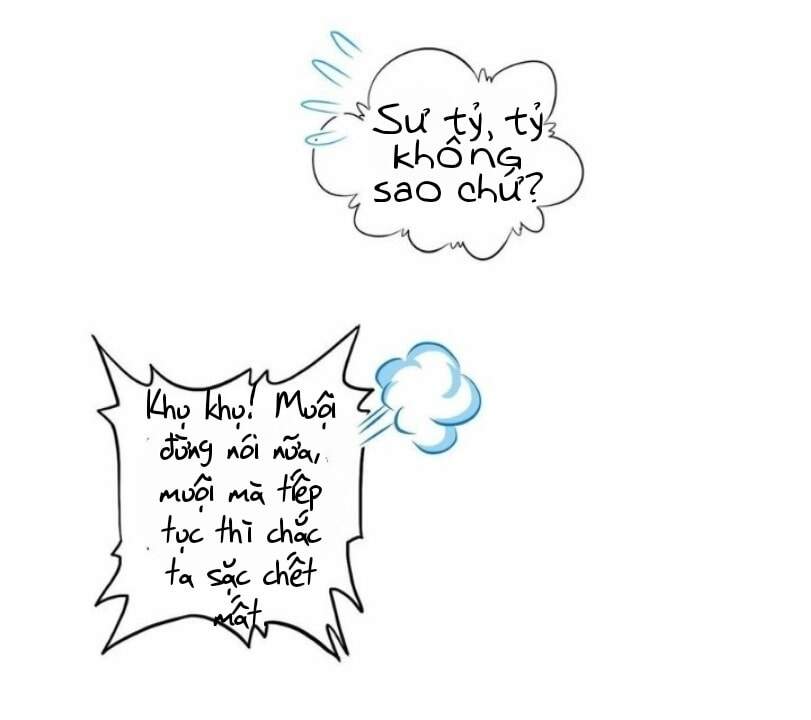 Sư tỷ, tỷ
không
sao chứ?
Khụ khụ! Muội
đừng nói nữa,
muội mà tiếp
tục thì chắc
ta sặc chết
mất.